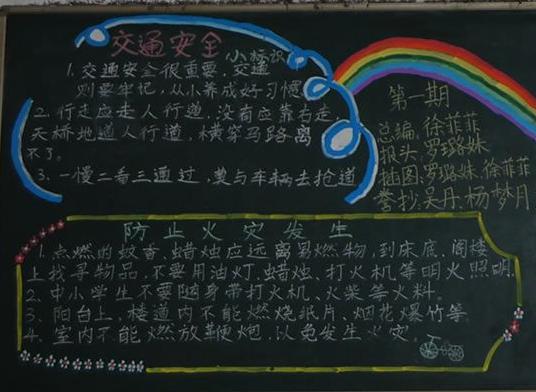 交通安全
小标识
1.交通安全很重要,交通
则要牢记,从小养成好习惯
2.行走应走人行道,没有应靠右走,
天桥地道人行道,横穿马路离
不了。
3.一慢二看三通过,莫与车辆去抢道
第一期
总编:徐菲菲
报头:罗璐妹
插图:罗璐妹、徐菲菲
誊抄:吴丹、杨梦月
防止火灾发生
1.点燃的蚊香、蜡烛应远离易燃物,到床底、阁楼
上找寻物品,不要用油灯、蜡烛、打火机等明火照明.
2.中小学生不要随身带打火机、火柴等火料。
3.阳台上、楼道内不能燃烧纸片、烟花爆竹等
4.室内不能燃放鞭炮,以免发生火灾。